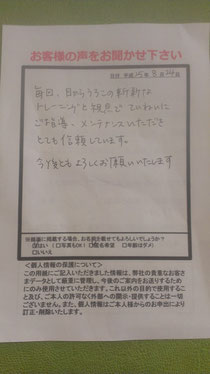 お客様の声をお聞かせ下さい
日付 平成25年8月24日
毎回、目からうろこの斬新な
トレーニングと視点で ていねいに
ご指導、メンテナンスいただき
とても信頼しています。
今後ともよろしくお願いいたします
※掲載に掲載する場合、お名前を載せてもよろしいでしょうか?
□はい （□写真もOK！ □匿名希望 □年齢はダメ）
□いいえ
＜個人情報の保護について＞
この用紙にご記入いただきました情報は、弊社の貴重なお客さ
まデータとして厳重に管理し、今後のご案内をお送りするため
にのみ使用させていただきます。これ以外の目的で使用するこ
と及び、ご本人の許可なく外部への開示・提供することは一切
ございません。また、個人情報はご本人様からのお申出により
訂正・削除いたします。